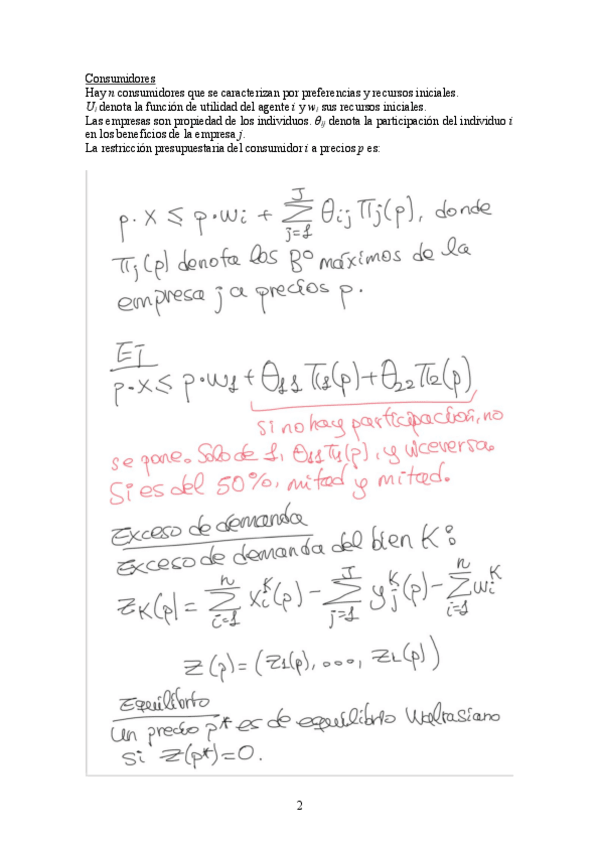 Consumidores
Hay n consumidores que se caracterizan por preferencias y recursos iniciales.
Uᵢ denota la función de utilidad del agente i y wᵢ sus recursos iniciales.
Las empresas son propiedad de los individuos. θᵢⱼ denota la participación del individuo i
en los beneficios de la empresa j.
La restricción presupuestaria del consumidor i a precios p es:
p·x ≤ p·wi + Σ_{j=1}^{J} θij πj(p), donde
πj(p) denota los Bº máximos de la
empresa j a precios p.
EJ
p·x ≤ p·w1 + θ11 π1(p) + θ22 π2(p)
si no hay participación, no
se pone. Solo de 1, θ11 π1(p), y viceversa.
Si es del 50%, mitad y mitad.
Exceso de demanda
Exceso de demanda del bien K:
ZK(p) = Σ_{i=1}^{n} xi^K(p) - Σ_{j=1}^{J} yj^K(p) - Σ_{i=1}^{n} wi^K
Z(p) = (Z1(p), ..., ZL(p))
Equilibrio
Un precio p* es de equilibrio Walrasiano
si Z(p*)=0.
2